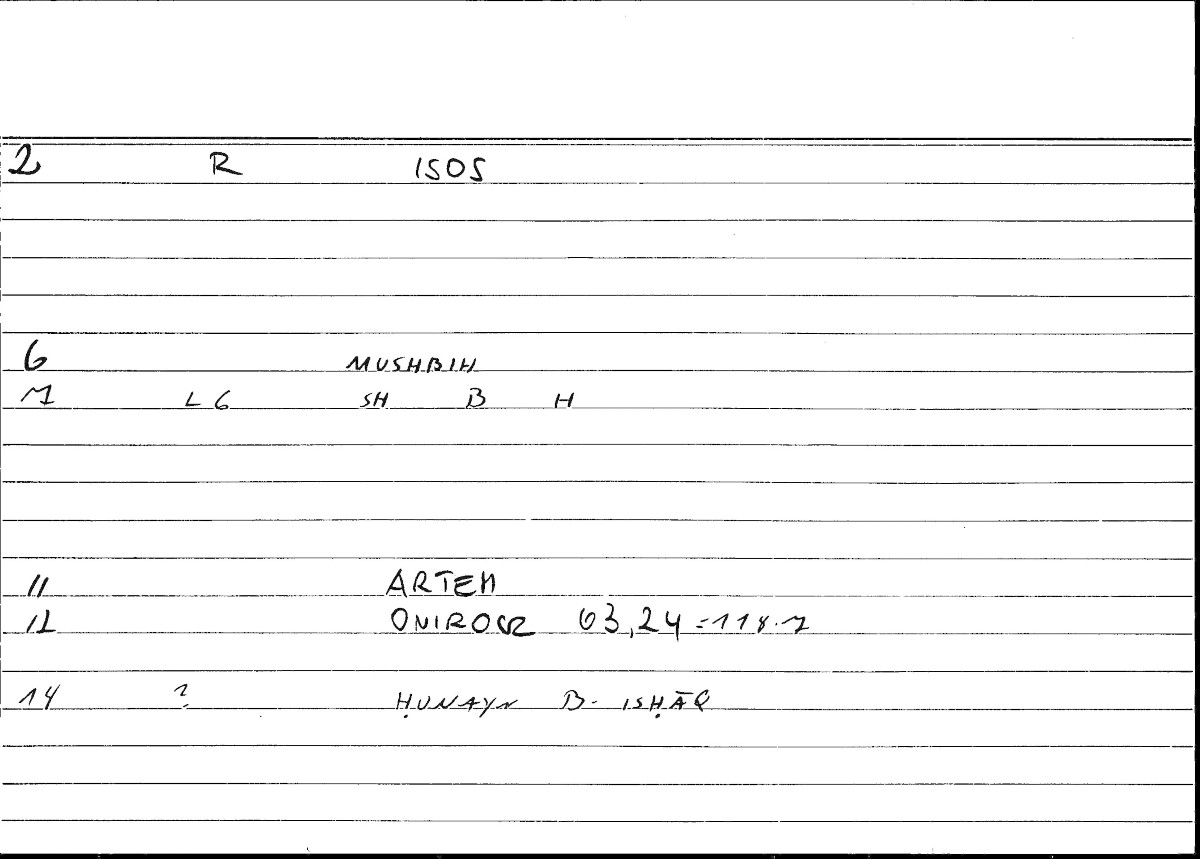 2 R ISOS
6 MUSHBIH
7 L6 SH B H
11 ARTEM
12 ONIROCR 63,24=118.7
14 ? ḤUNAYN B. ISḤĀQ